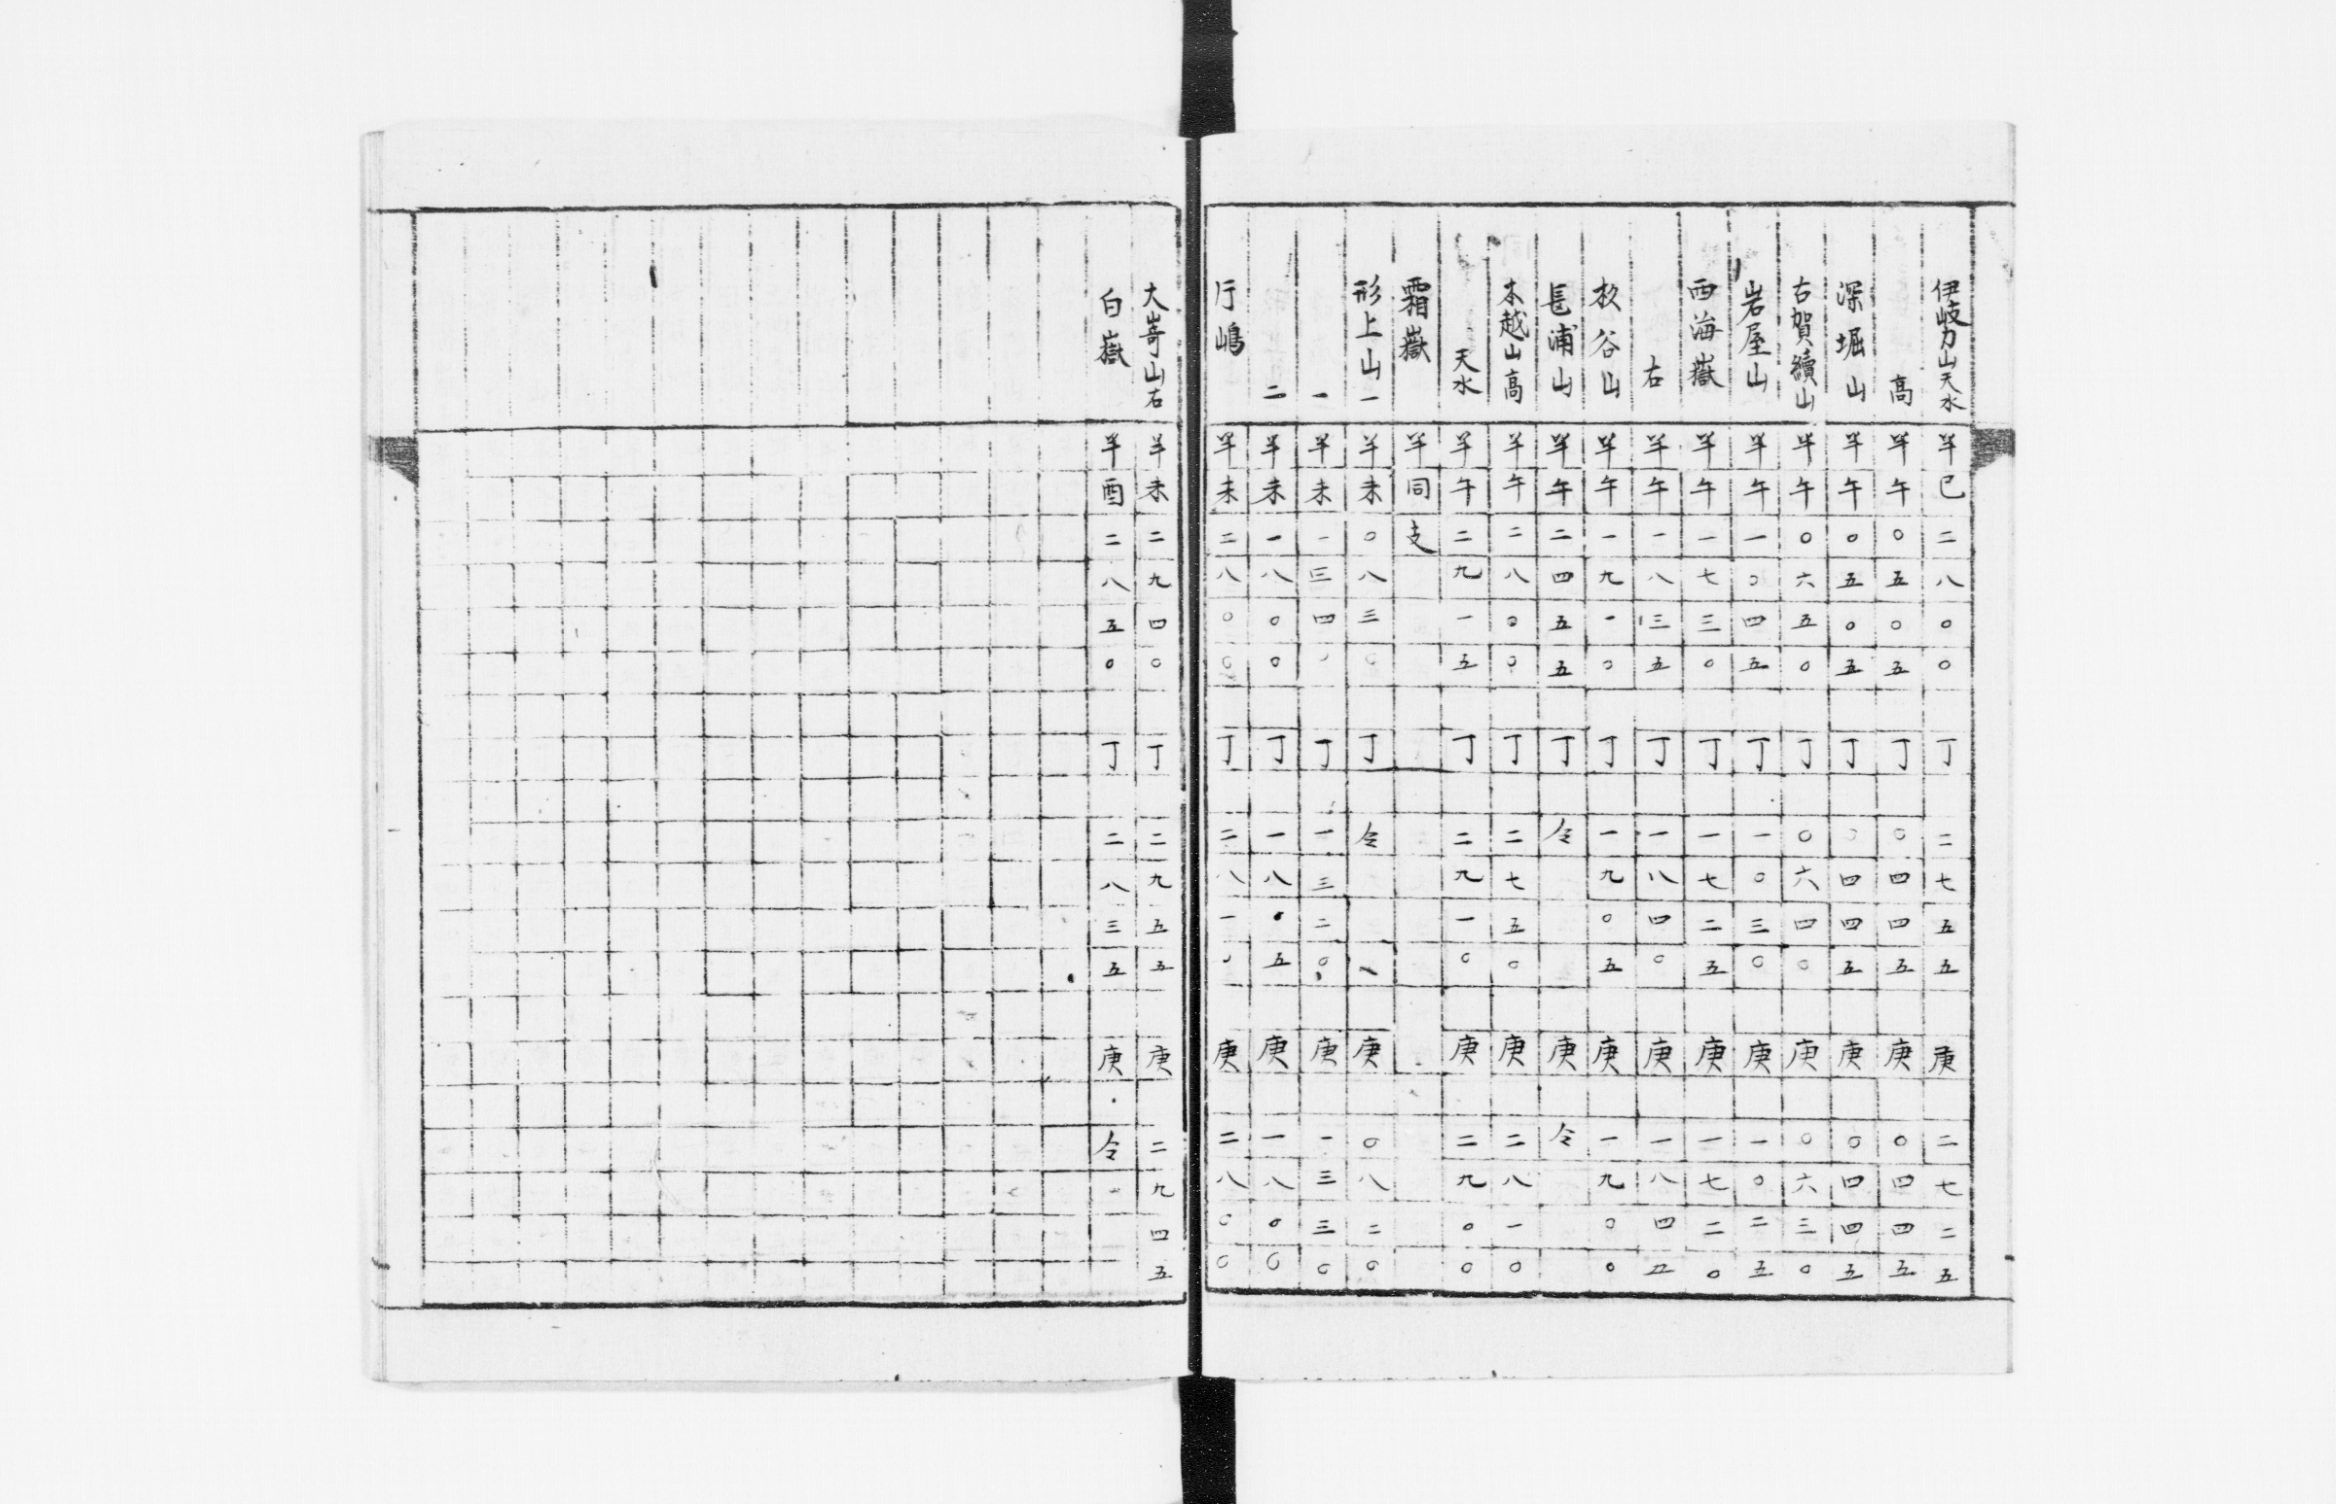 伊岐力山天水 半巳二八〇〇 丁 二七五五 庚 二七二五
高 半午〇五〇五 丁 〇四四五 庚 〇四四五
深堀山 半午〇五〇五 丁 〇四四五 庚 〇四四五
古賀續山 半午〇六五〇 丁 〇六四〇 庚 〇六三〇
岩屋山 半午一〇四五 丁 一〇三〇 庚 一〇二五
西海嶽 半午一七三〇 丁 一七二五 庚 一七二〇
右 半午一八三五 丁 一八四〇 庚 一八四五
杦谷山 半午一九一〇 丁 一九〇五 庚 一九〇〇
長浦山 半午二四五五 丁 仝 庚 仝
本越山高 半午二八〇〇 丁 二七五〇 庚 二八一〇
天水 半午二九一五 丁 二九一〇 庚 二九〇〇
霜嶽 半同支
形上山一 半未〇八三〇 丁 仝 庚 〇八二〇
一 半未一三四〇 丁 一三二〇 庚 一三三〇
二 半未一八〇〇 丁 一八〇五 庚 一八〇〇
嶋 半未二八〇〇 丁 二八一〇 庚 二八〇〇
大嵜山石 半未二九四〇 丁 二九五五 庚 二九四五
白嶽 半酉二八五〇 丁 二八三五 庚 仝